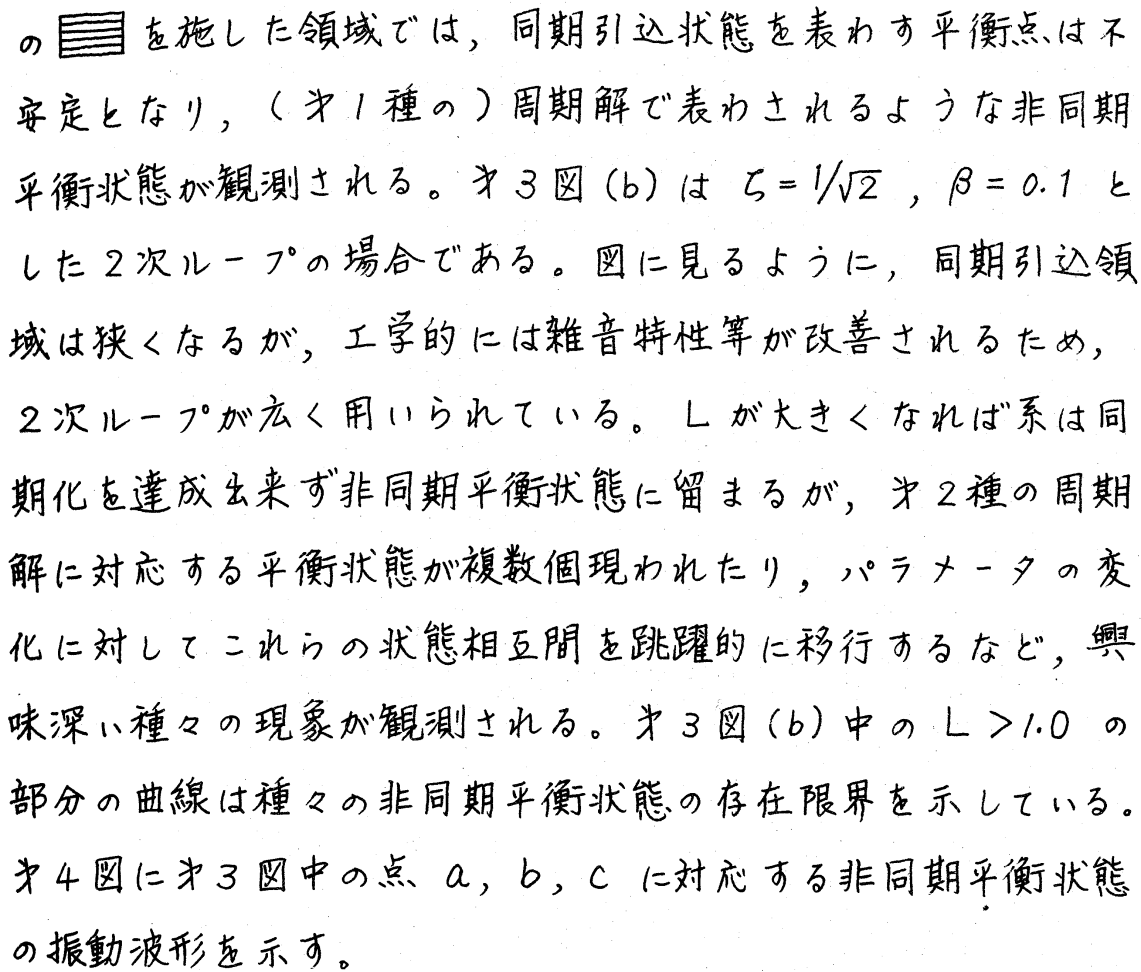 の▤を施した領域では，同期引込状態を表わす平衡点は不
安定となり，（才1種の）周期解で表わされるような非同期
平衡状態が観測される。才3図(b)は ζ=1/√2 , β=0.1 と
した2次ループの場合である。図に見るように，同期引込領
域は狭くなるが，工学的には雑音特性等が改善されるため，
2次ループが広く用いられている。Lが大きくなれば系は同
期化を達成出来ず非同期平衡状態に留まるが，才2種の周期
解に対応する平衡状態が複数個現われたり，パラメータの変
化に対してこれらの状態相互間を跳躍的に移行するなど，興
味深い種々の現象が観測される。才3図(b)中のL>1.0の
部分の曲線は種々の非同期平衡状態の存在限界を示している。
才4図に才3図中の点 a, b, c に対応する非同期平衡状態
の振動波形を示す。